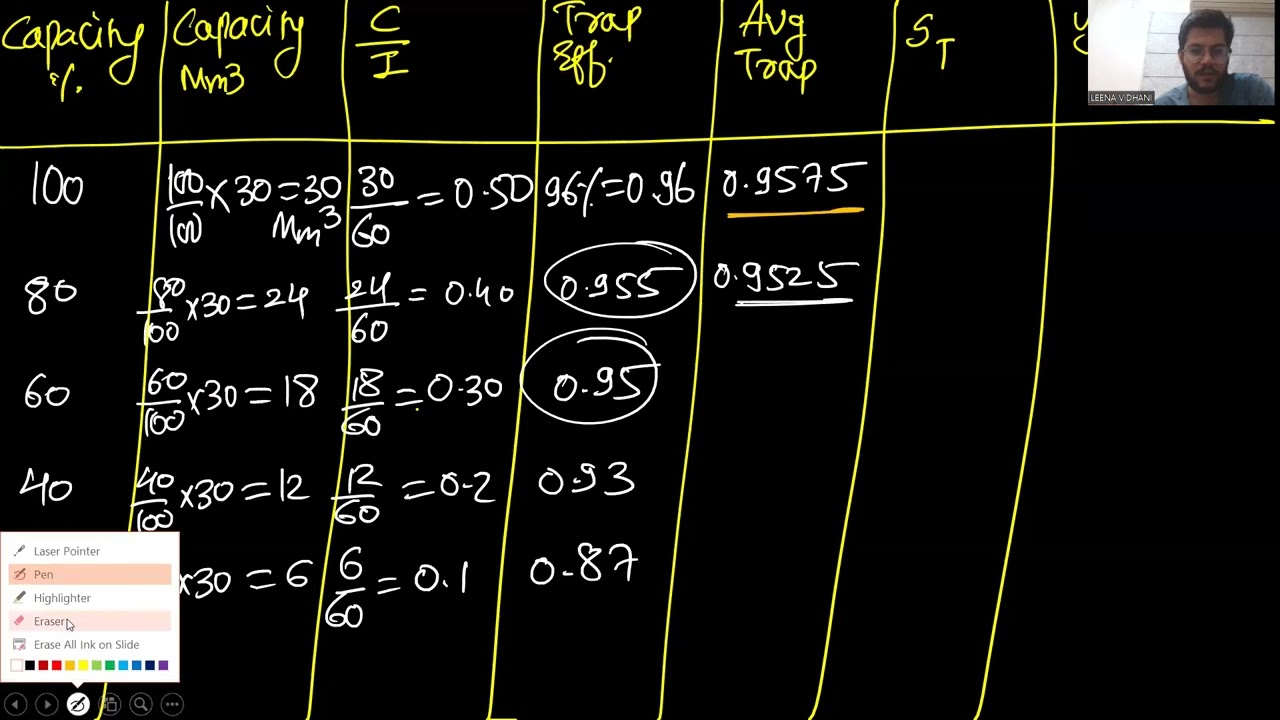 Capacity %. Capacity Mm3 C/I Trap Eff. Avg Trap S_T y
LEENA VIDHANI
100 100/100 x 30 = 30 Mm³ 30/60 = 0.50 96% = 0.96 0.9575
80 80/100 x30 = 24 24/60 = 0.40 0.955 0.9525
60 60/100 x30 = 18 18/60 = 0.30 0.95
40 40/100 x30 = 12 12/60 = 0.2 0.93
x30 = 6 6/60 = 0.1 0.87
Laser Pointer
Pen
Highlighter
Eraser
Erase All Ink on Slide